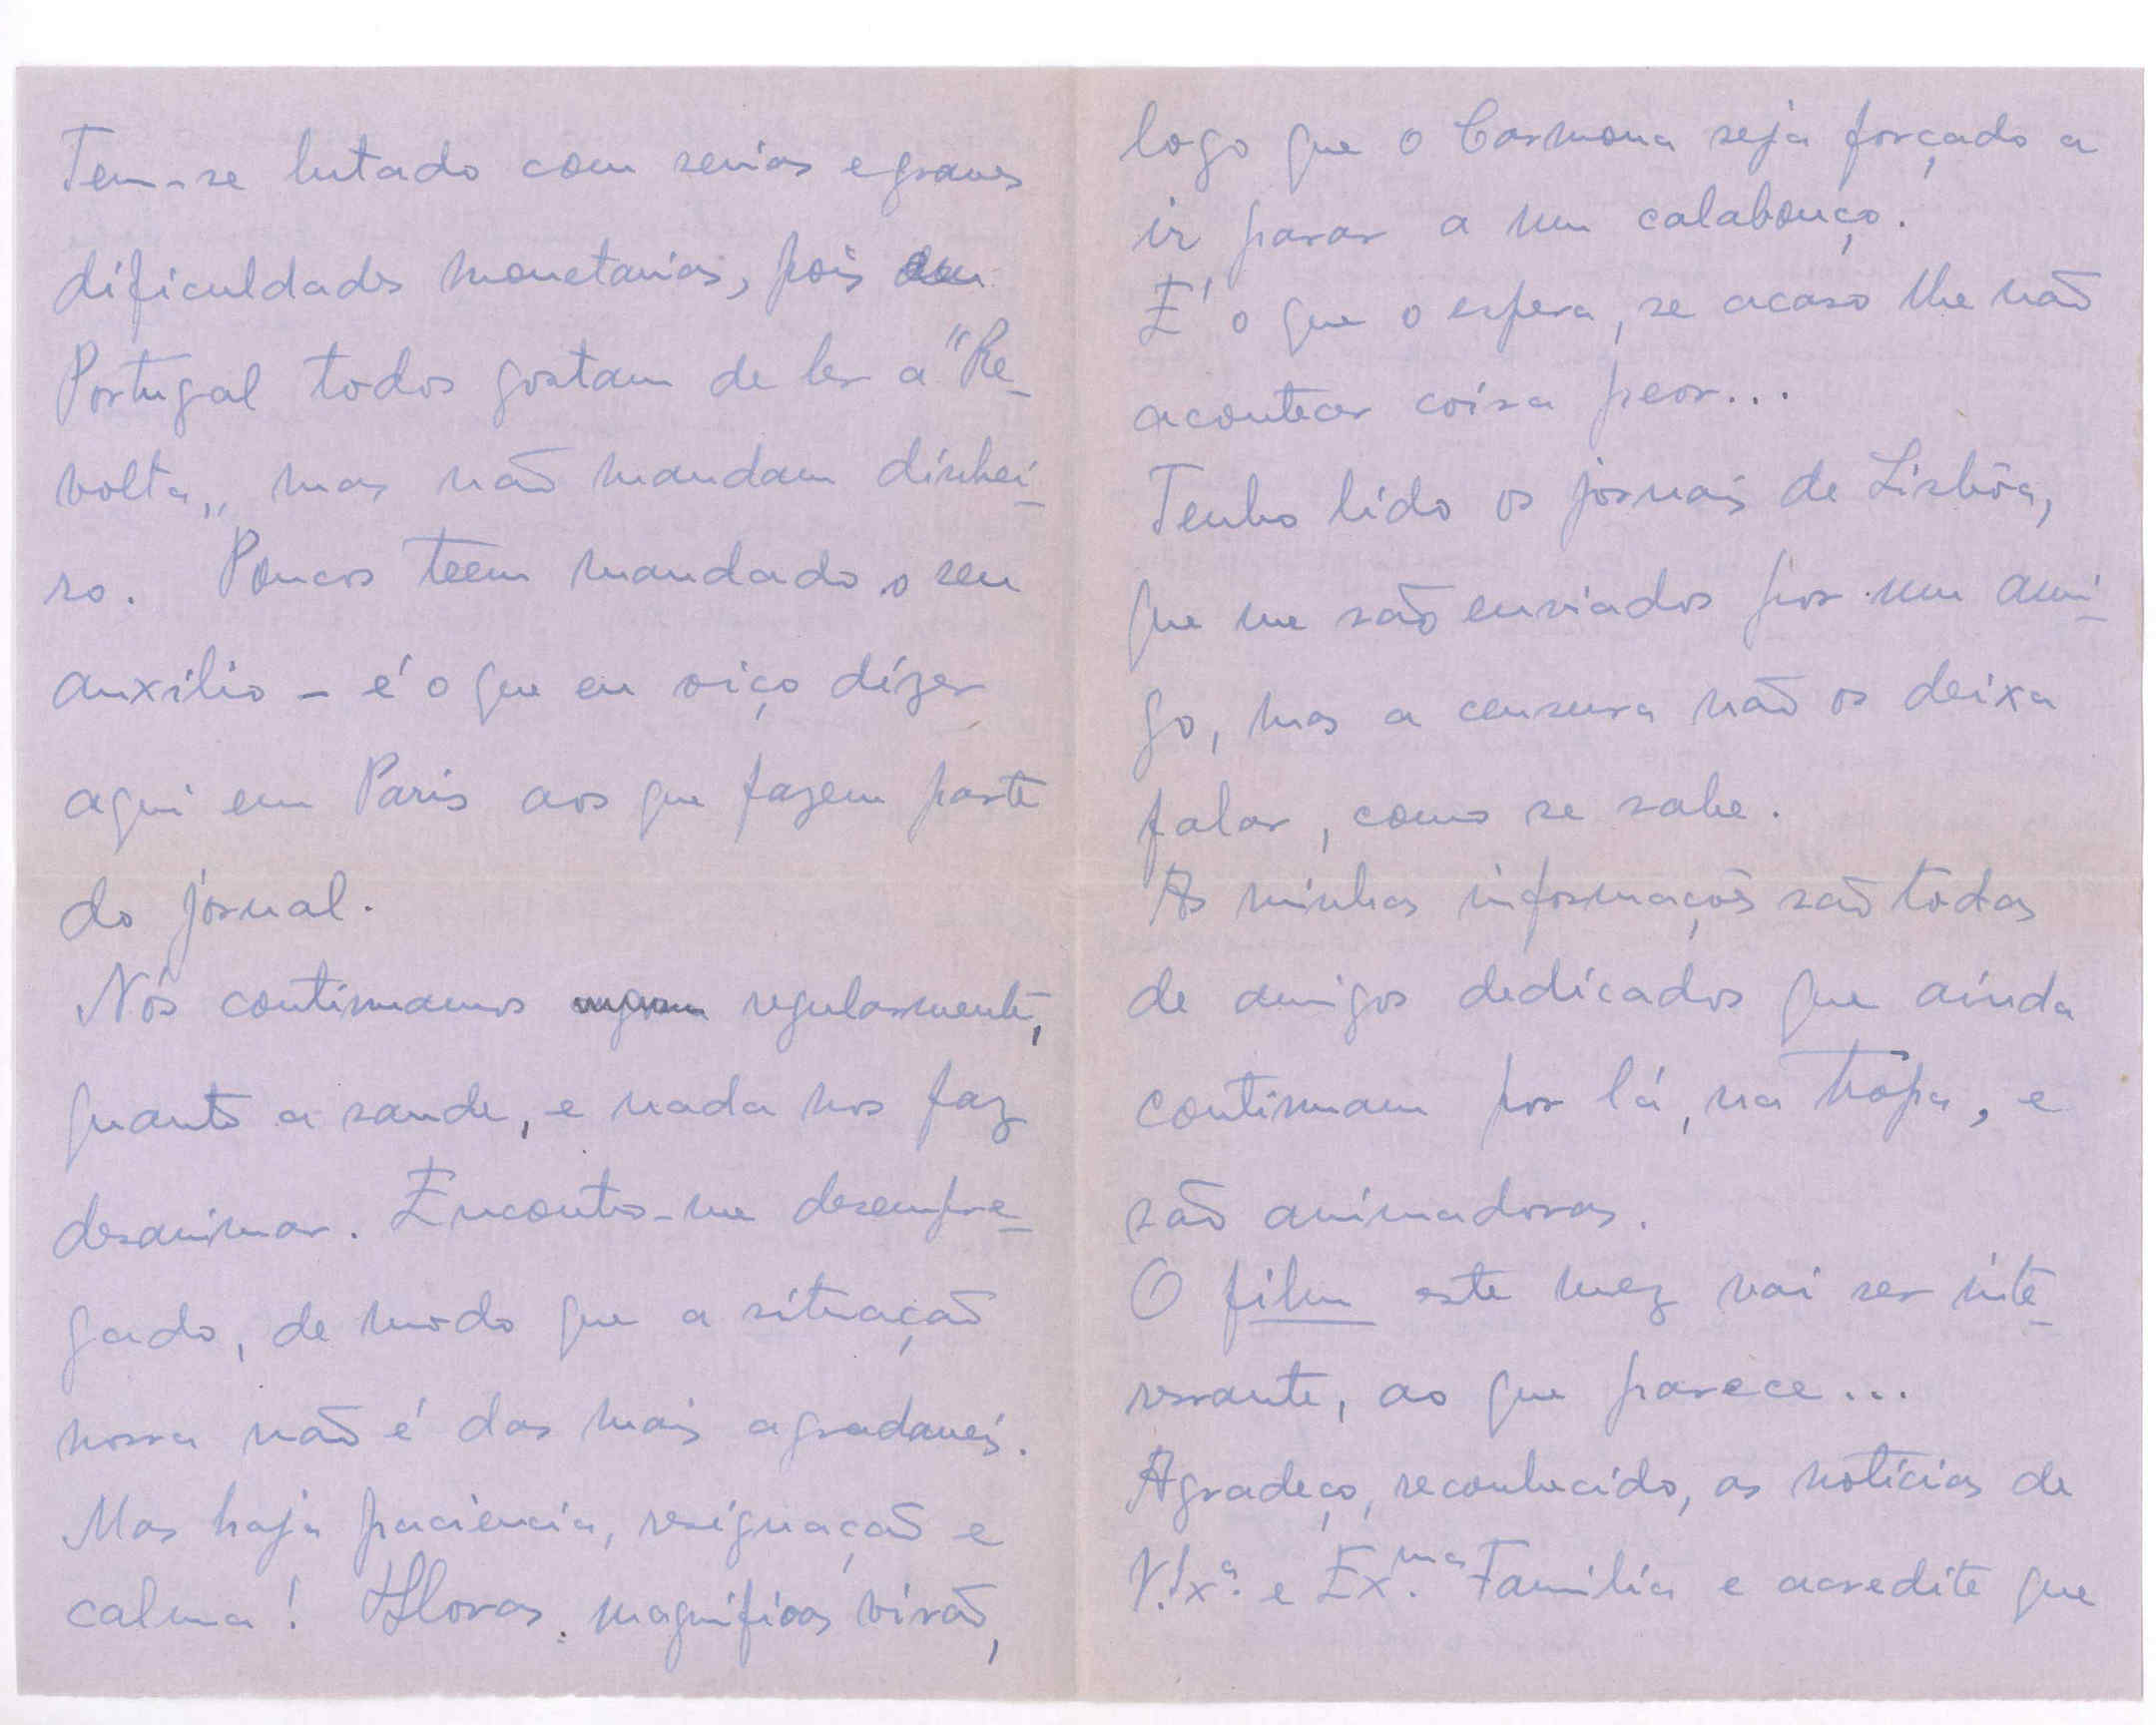 Tem-se lutado com serias e graves
dificuldades monetarias, pois em
Portugal todos gostam de ler a "Re-
volta„ mas não mandam dinhei-
ro. Poucos teem mandado o seu
auxilio – é o que eu oiço dizer
aqui em Paris aos que fazem parte
do jornal.
Nós continuamos regularmente,
quanto a saude, e nada nos faz
desanimar. Encontro-me desempre-
gado, de modo que a situação
nossa não é das mais agradaveis.
Mas haja paciencia, resignação e
calma! Horas magnificas virão,
logo que o Carmona seja forçado a
ir parar a um calabouço.
E' o que o espera, se acaso lhe não
acontecer coisa peor...
Tenho lido os jornais de Lisbôa,
que me são enviados por um ami-
go, mas a censura não os deixa
falar, como se sabe.
As minhas informações são todas
de amigos dedicados que ainda
continuam por lá, na tropa, e
são animadoras.
O film este mez vai ser inte-
ressante, ao que parece...
Agradeço, reconhecido, as noticias de
V. Exª. e Ex.ma Familia e acredite que